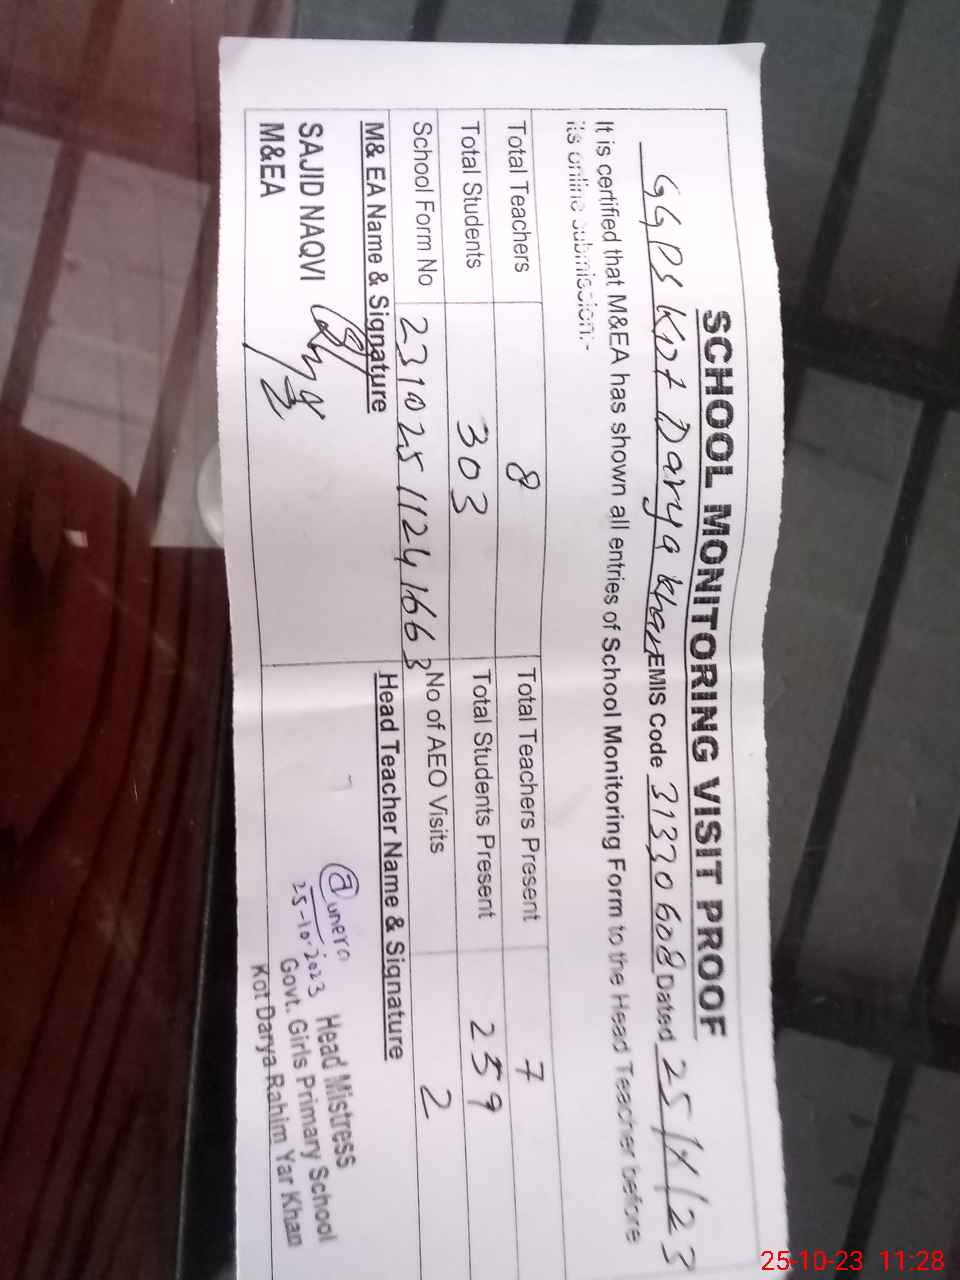 SCHOOL MONITORING VISIT PROOF
GGPS Kot Darya khan EMIS Code 31330608 Dated 25/X/23
It is certified that M&EA has shown all entries of School Monitoring Form to the Head Teacher before
its online submission:-
Total Teachers 8 Total Teachers Present 7
Total Students 303 Total Students Present 259
School Form No 23102511241663 No of AEO Visits 2
M& EA Name & Signature Head Teacher Name & Signature
SAJID NAQVI
M&EA
25-10-2023
Head Mistress
Govt. Girls Primary School
Kot Darya Rahim Yar Khan
25-10-23 11:28